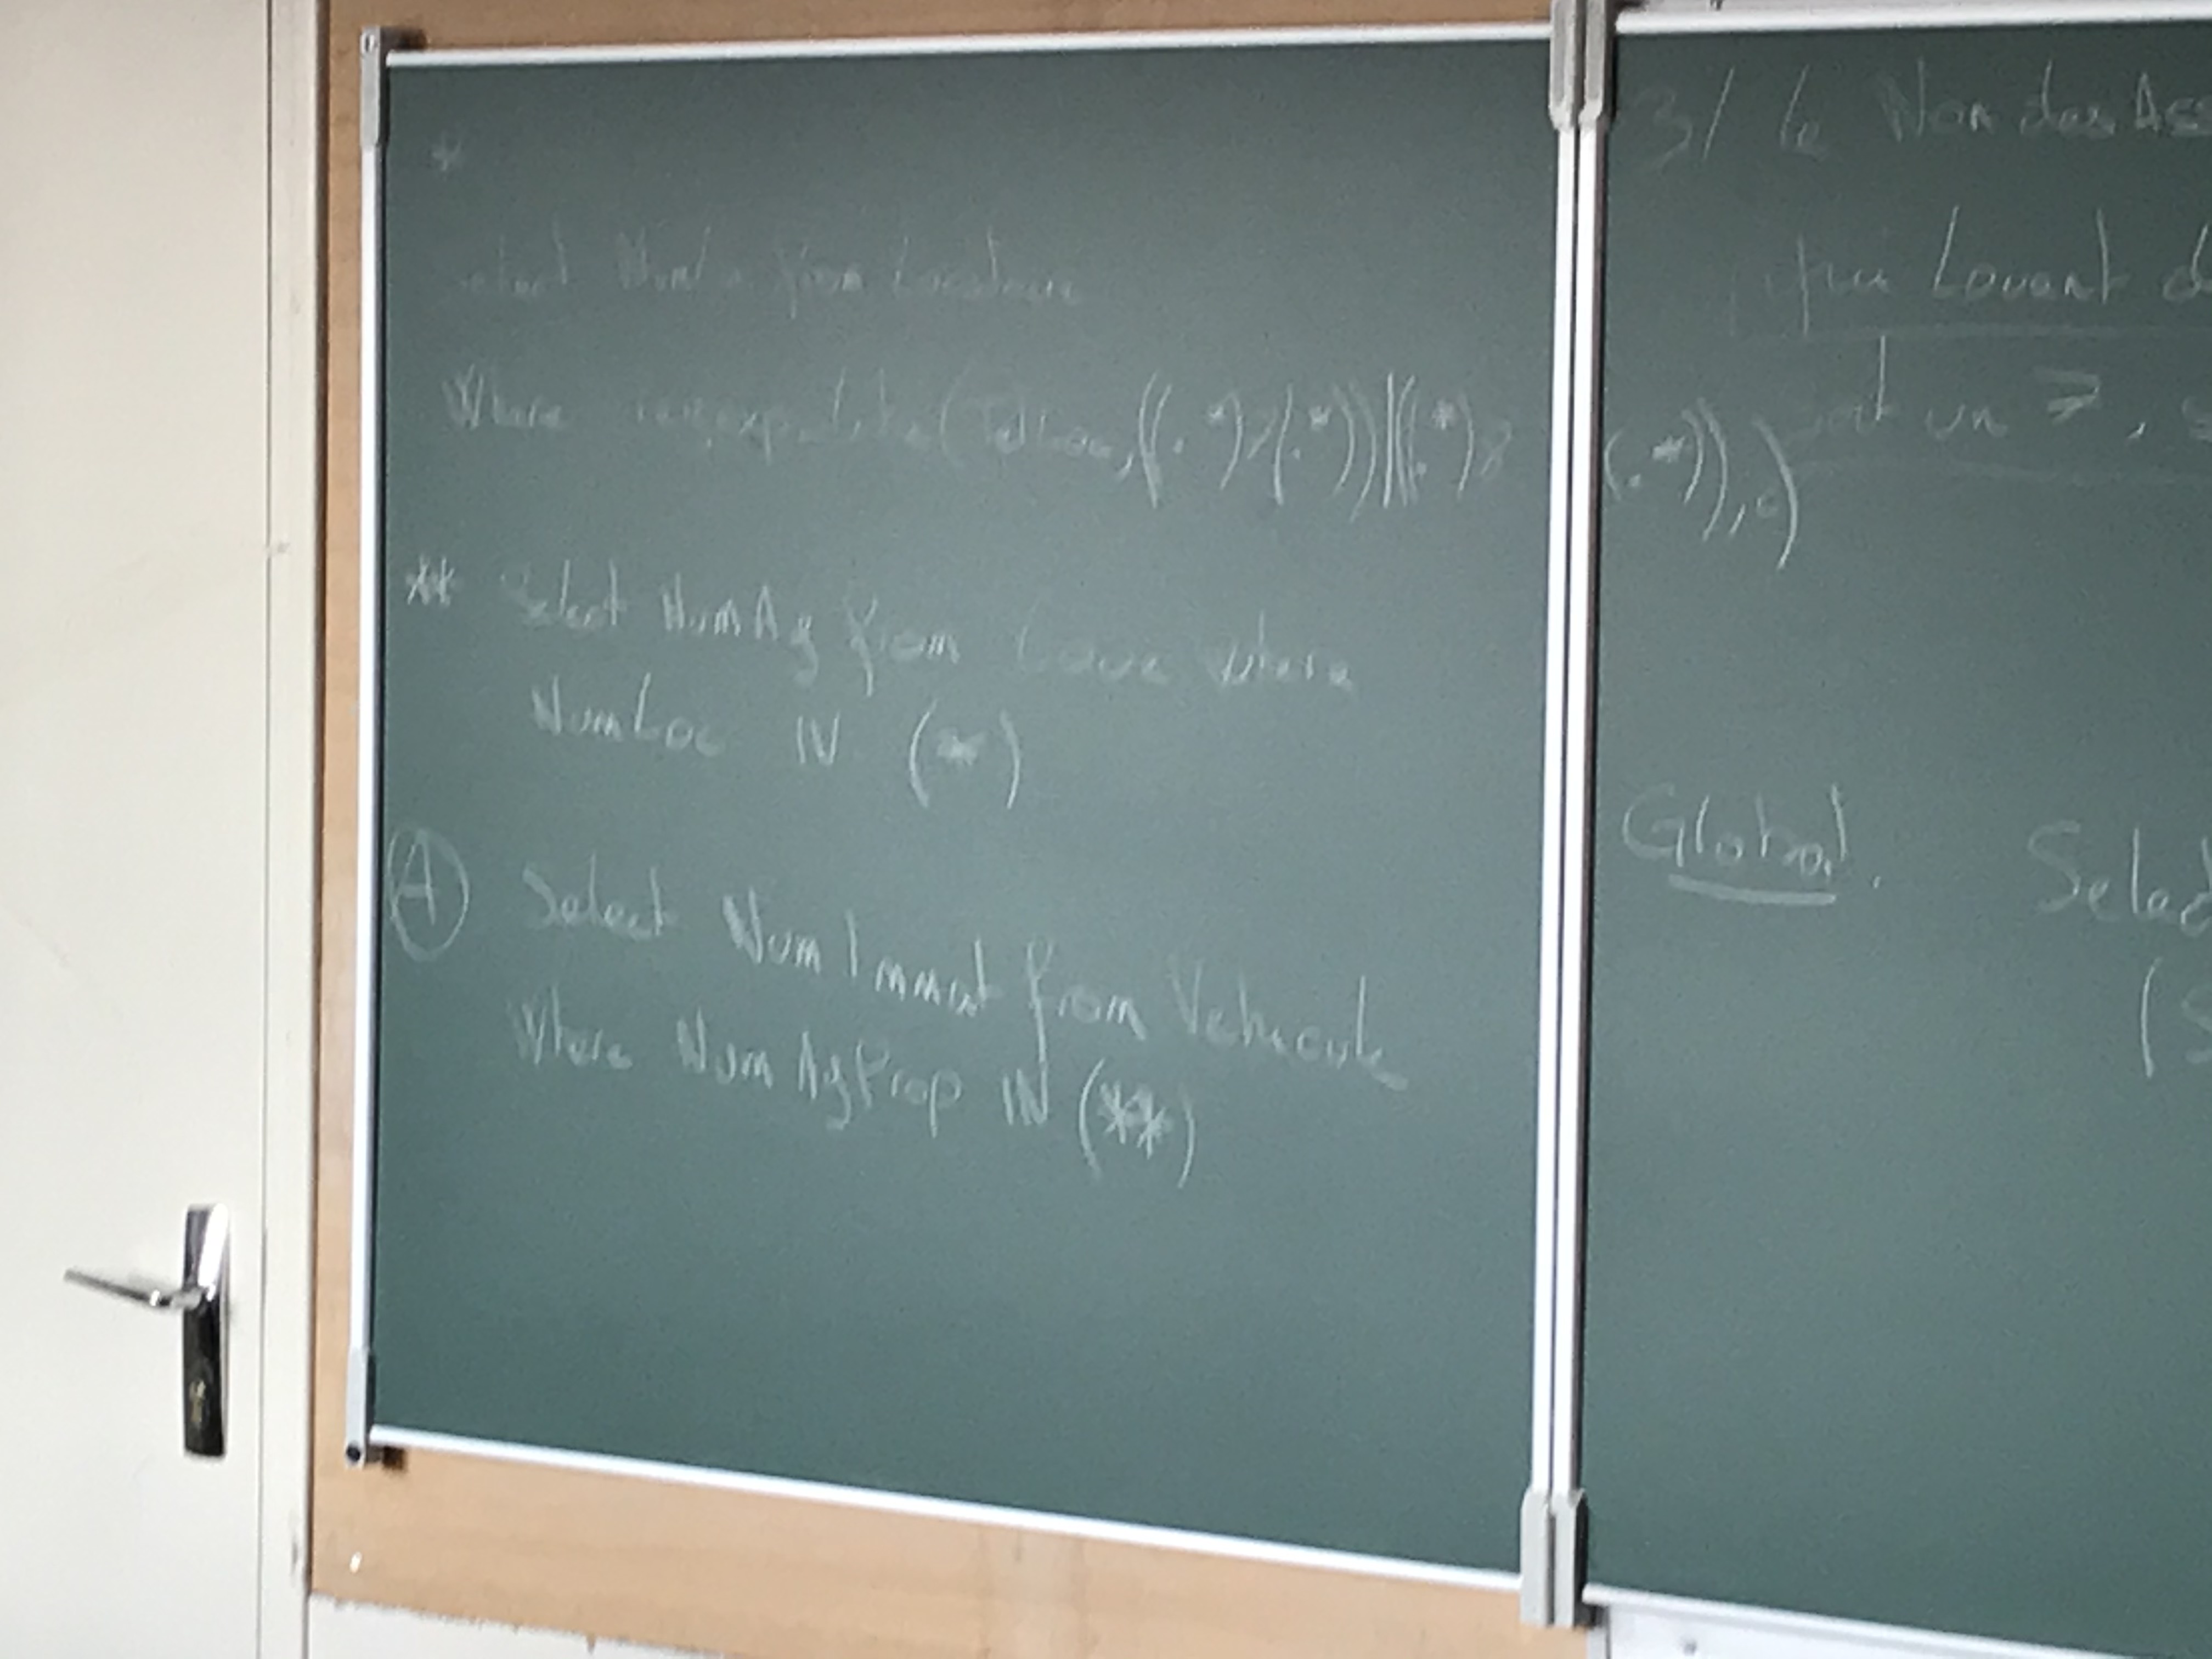 *
Select NumLo from Locataire
Where regexp_Like(TelLoc,((.*)7(.*))|((.*)8(.*)),c)
** Select NumAg from Loue where
NumLoc IN (*)
A Select NumImmat from Vehicule
Where NumAgProp IN (**)
3/ le Nom des
qui Louent
un 7,
Global. Select
(S